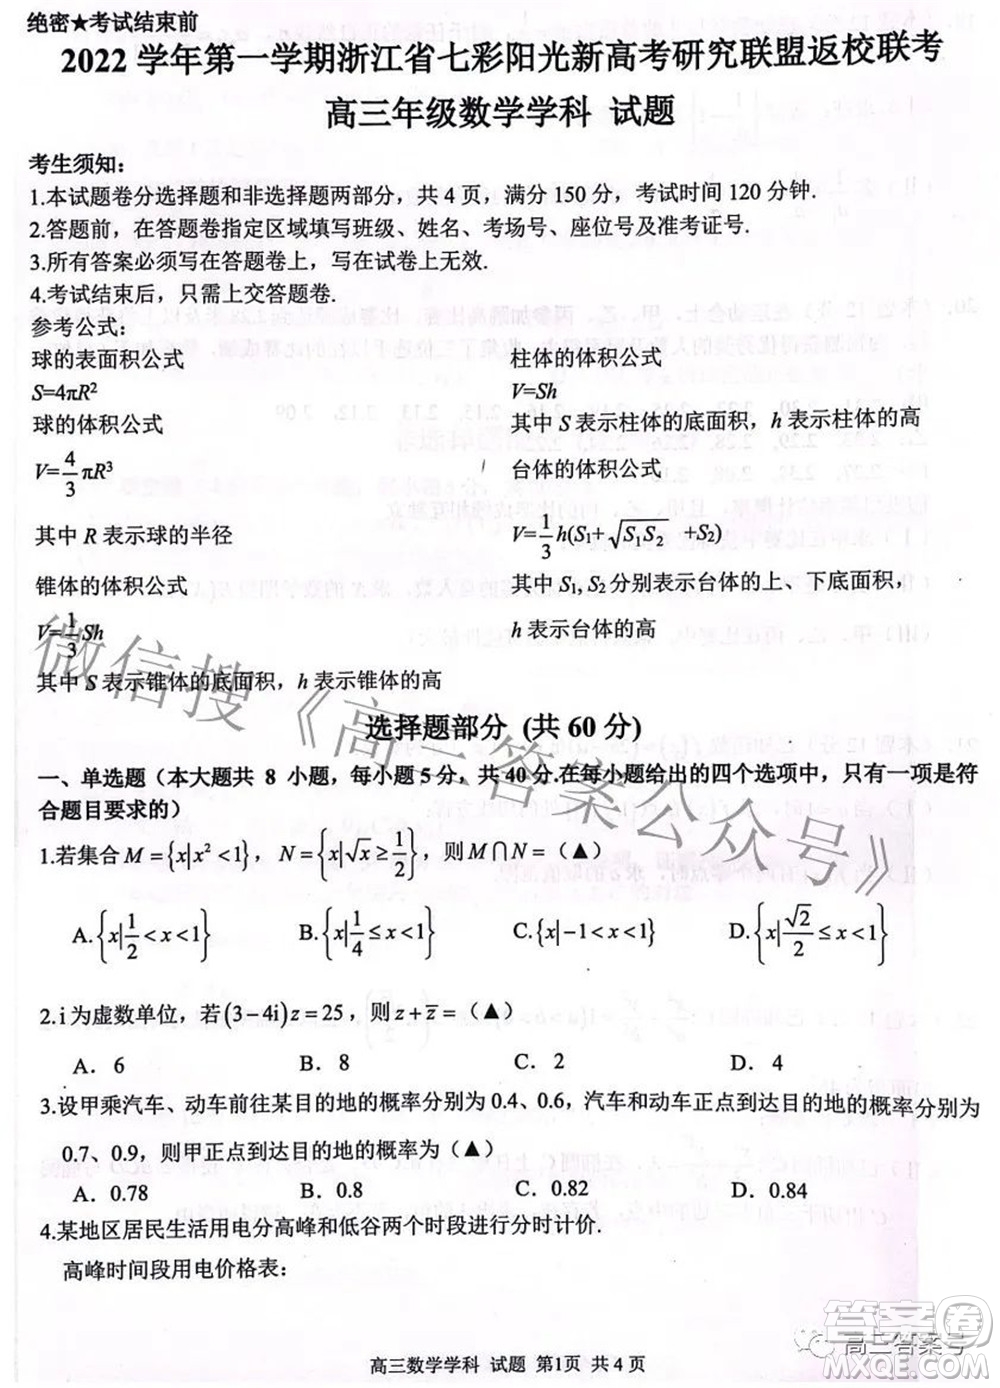 绝密★考试结束前
2022 学年第一学期浙江省七彩阳光新高考研究联盟返校联考
高三年级数学学科 试题
考生须知:
1.本试题卷分选择题和非选择题两部分，共 4 页，满分 150 分，考试时间 120 分钟.
2.答题前，在答题卷指定区域填写班级、姓名、考场号、座位号及准考证号.
3.所有答案必须写在答题卷上，写在试卷上无效.
4.考试结束后，只需上交答题卷.
参考公式:
球的表面积公式
S=4πR²
球的体积公式
V=4/3 πR³
其中 R 表示球的半径
锥体的体积公式
V=1/3 Sh
其中 S 表示锥体的底面积，h 表示锥体的高
柱体的体积公式
V=Sh
其中 S 表示柱体的底面积，h 表示柱体的高
台体的体积公式
V=1/3 h(S₁+√(S₁S₂) +S₂)
其中 S₁, S₂ 分别表示台体的上、下底面积，
h 表示台体的高
选择题部分 (共 60 分)
一、单选题（本大题共 8 小题，每小题 5 分，共 40 分.在每小题给出的四个选项中，只有一项是符
合题目要求的）
1.若集合 M={x|x²<1}，N={x|√x≥1/2}，则 M∩N=（▲）
A.{x|1/2<x<1} B.{x|1/4≤x<1} C.{x|-1<x<1} D.{x|√2/2≤x<1}
2.i 为虚数单位，若(3-4i)z=25，则 z+z̅=（▲）
A. 6 B. 8 C. 2 D. 4
3.设甲乘汽车、动车前往某目的地的概率分别为 0.4、0.6，汽车和动车正点到达目的地的概率分别为
0.7、0.9，则甲正点到达目的地的概率为（▲）
A. 0.78 B. 0.8 C. 0.82 D. 0.84
4.某地区居民生活用电分高峰和低谷两个时段进行分时计价.
高峰时间段用电价格表:
高三数学学科 试题 第1页 共 4 页
微信搜《高三答案公众号》
高三答案号
答案圈
MXQE.COM